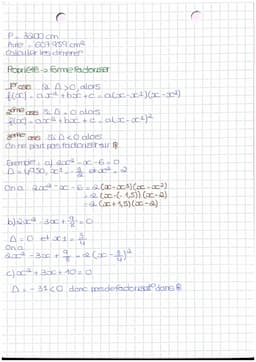 P = 3200 cm
Aire = 607 959 cm²
Calculer les dimensions
Propriété → Forme factorisée
1er cas Si Δ > 0, alors
f(x) = ax² + bx + c = a(x - x1)(x - x2)
2ème cas Si Δ = 0 alors
f(x) = ax² + bx + c = a(x - x1)²
3ème cas Si Δ < 0 alors
On ne peut pas factoriser sur ℝ
Exemple: a) 2x² - x - 6 = 0
Δ = 49 > 0, x1 = - 3/2 et x2 = 2
On a 2x² - x - 6 = 2(x - x1)(x - x2)
= 2(x - (-1,5))(x - 2)
= 2(x + 1,5)(x - 2)
b) 2x² - 3x + 9/8 = 0
Δ = 0 et x1 = 3/4
On a
2x² - 3x + 9/8 = 2(x - 3/4)²
c) x² + 3x + 10 = 0
Δ = - 31 < 0 donc pas de factorisat° dans ℝ